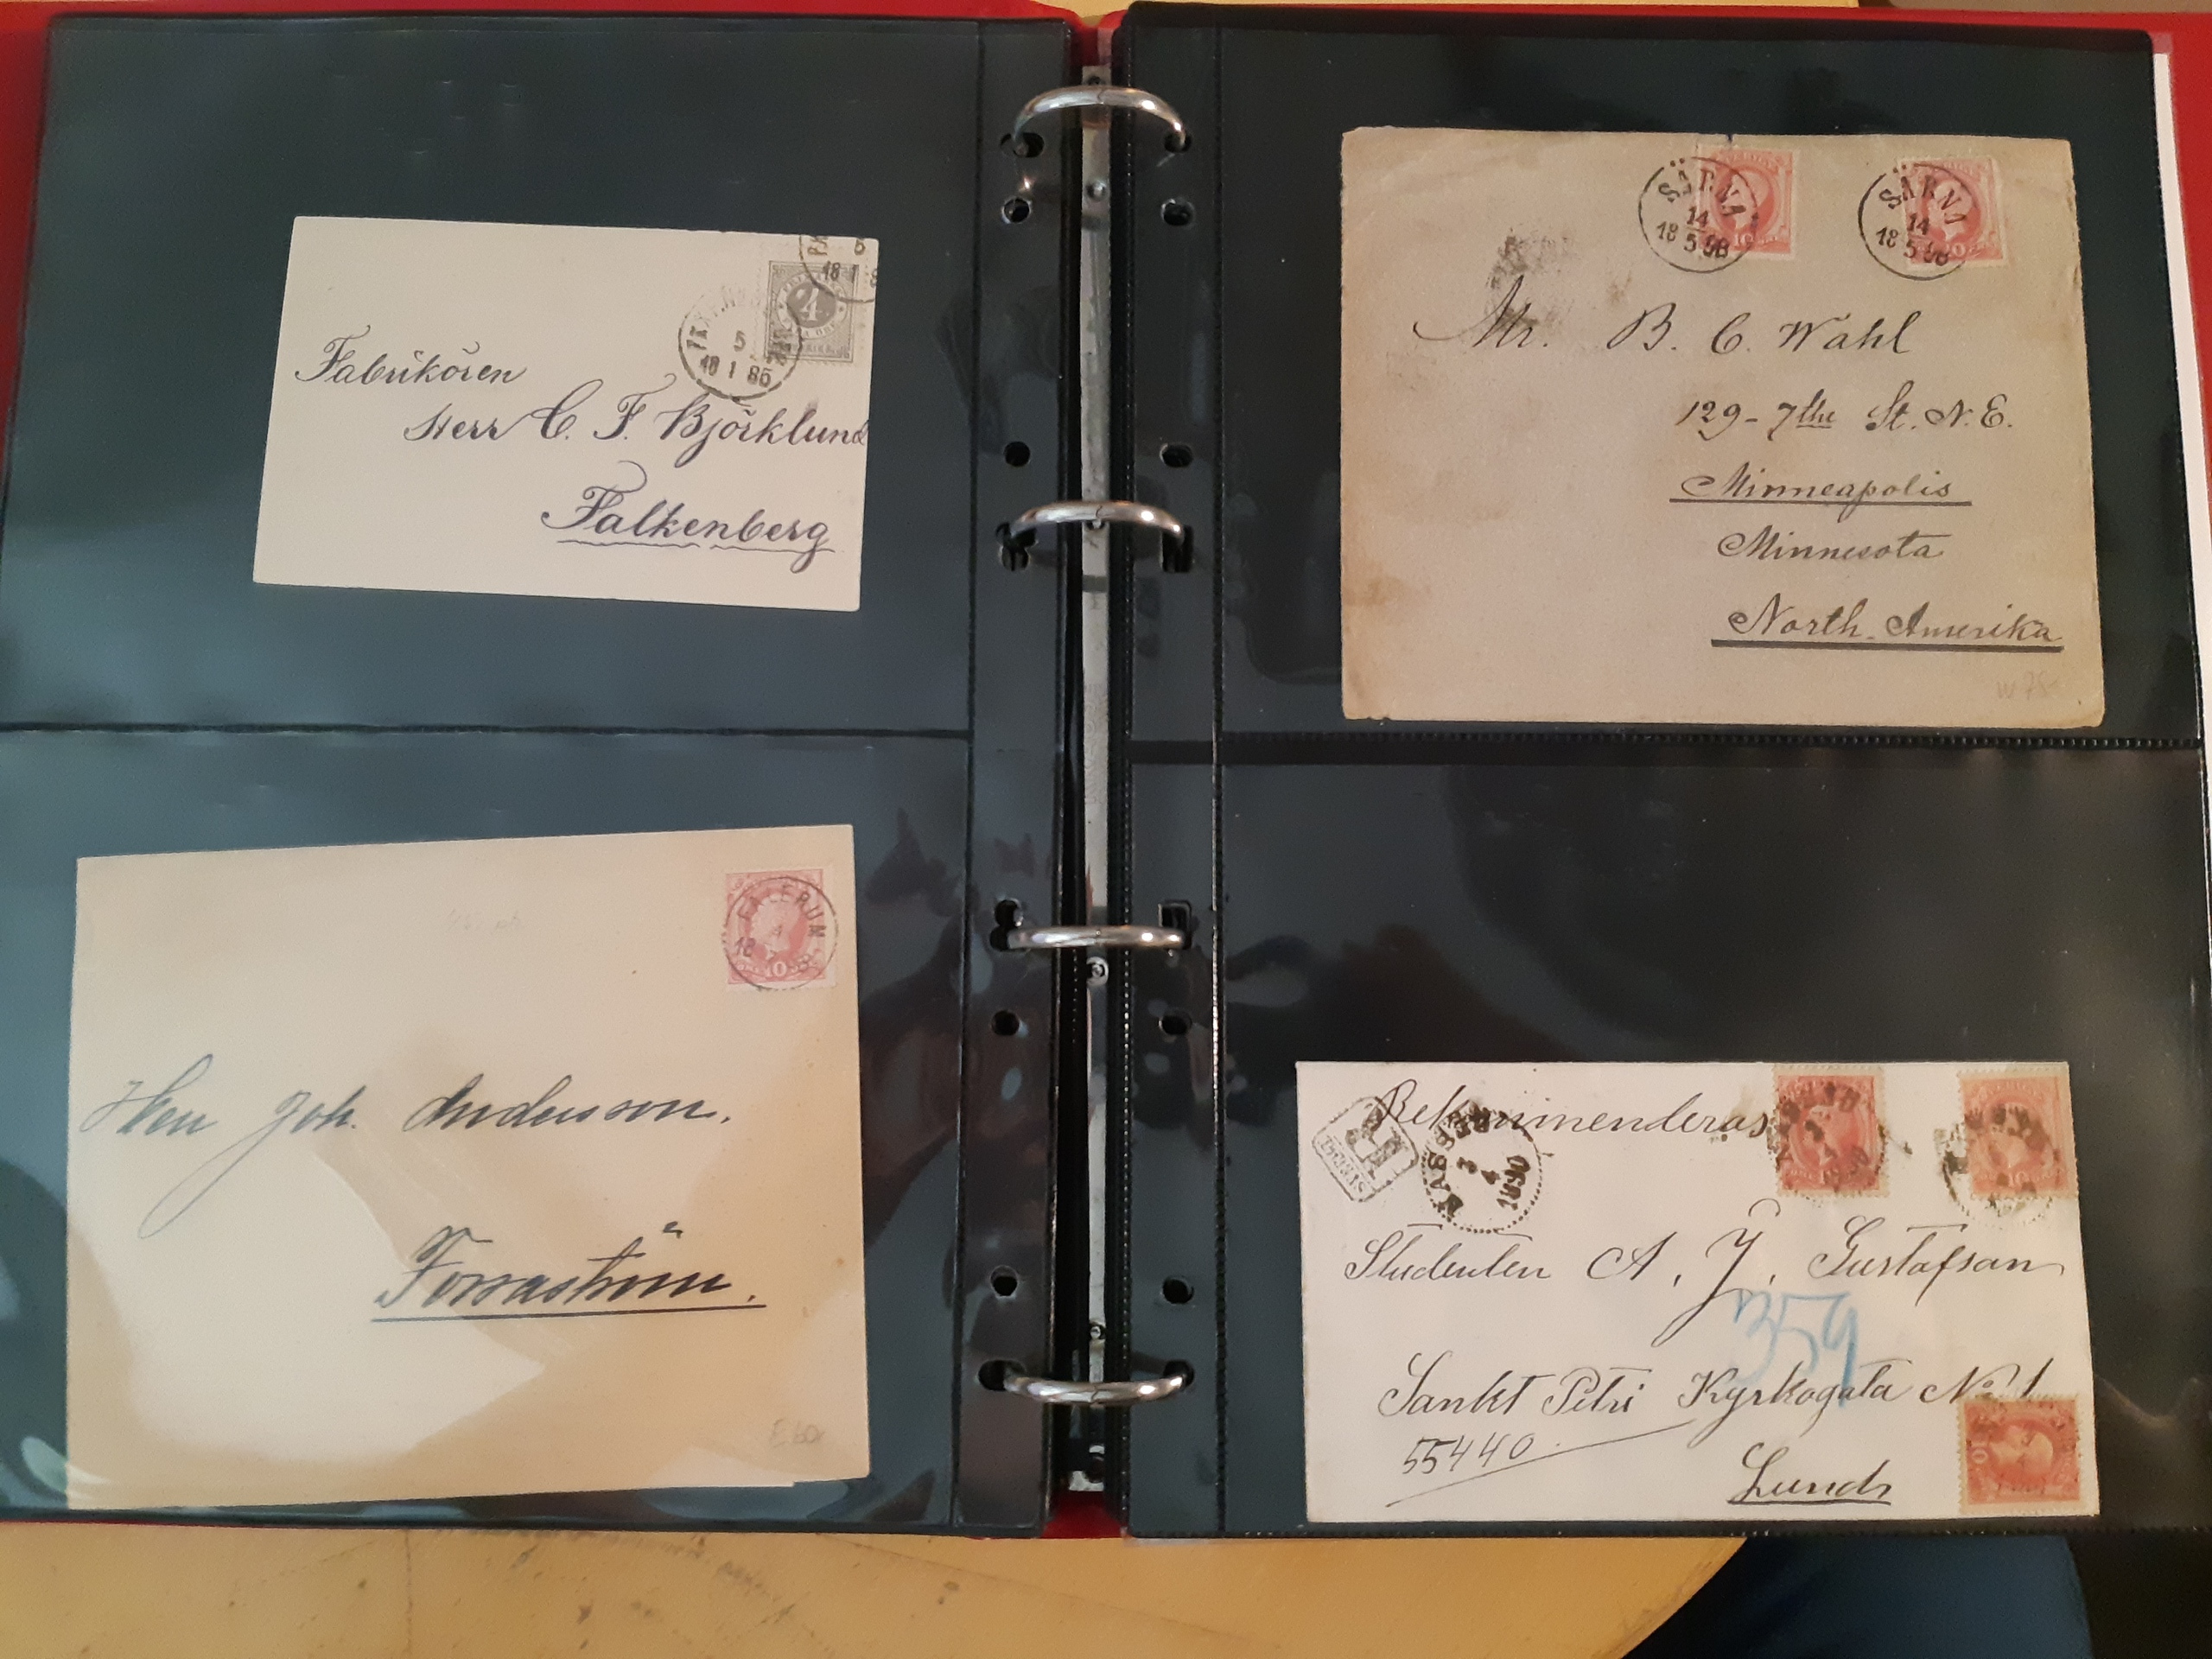 4
5
18 1 86
Fabrikören
Herr C. F. Björklund
Falkenberg
10
18
Herr Joh. Andersson.
Forsaström.
SÄRNA
14
18 5 98
10
SÄRNA
14
18 5 98
Mr. B. C. Wahl
129 - 7the St. N. E.
Minneapolis
Minnesota
North Amerika
Rekommenderas
R
3
4
1890
Studenten A. J. Gustafsan
359
Sankt Petri Kyrkogata No 1
55440
Lund